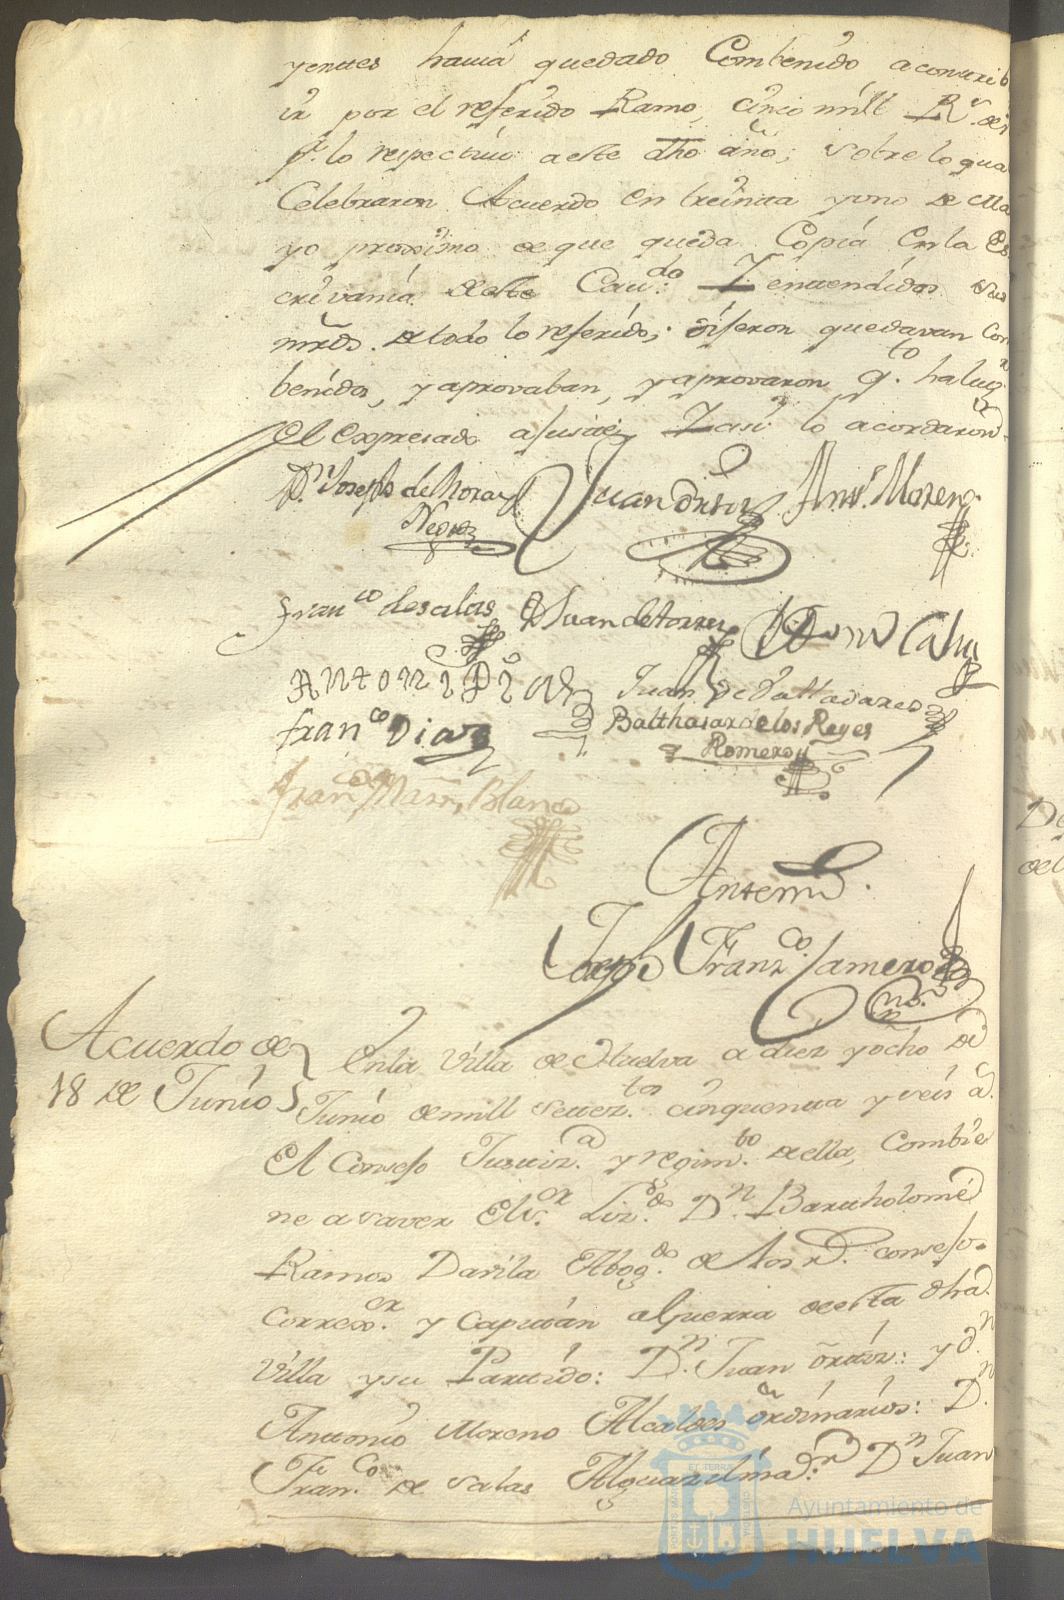 yentes havia quedado Combenido acontrib
ir por el referido Ramo, cinco mill R.s de v.
p.r lo respectivo a este dho año; sobre lo qual
Celebraron Acuerdo en treinta y uno de Ma
yo proximo de que queda Copia en la Es
crivania de este Cav.do: Y entendidos sus
mrds. de todo lo referido; dijeron quedavan con
benidos, y aprovaban, y aprovaron q.to ha
el expresado Y asi lo acordaron
D.n Joseph de Mora y Juan Ortiz Ant.o Moreno
Negro
Fran.co de Salas Juan de Torres
Antoni Juan de Valladares
fran.co Diaz Balthasar de los Reyes
Romero
Fran.co Marn, Blanco
Antemi.
Joseph Franz.co Camero
Acuerdo de
18 de Junio
En la Villa de Huelva a diez y ocho de
Junio de mill setez.tos cinquenta y seis a.s
El Consejo Justiz.a y regim.to de ella, Combie
ne a saver El s.or Liz.do D.n Bartholomé
Ramos Davila Abog.do de los r.s consejos
Correx.or y Capitán a Guerra de esta dha.
Villa y su Partido: D.n Juan Ortiz: y d.n
Antonio Moreno Alcaldes ordinarios: D.n
Fran.co de Salas Alguazil ma.or: D.n Juan
Ayuntamiento de
HUELVA